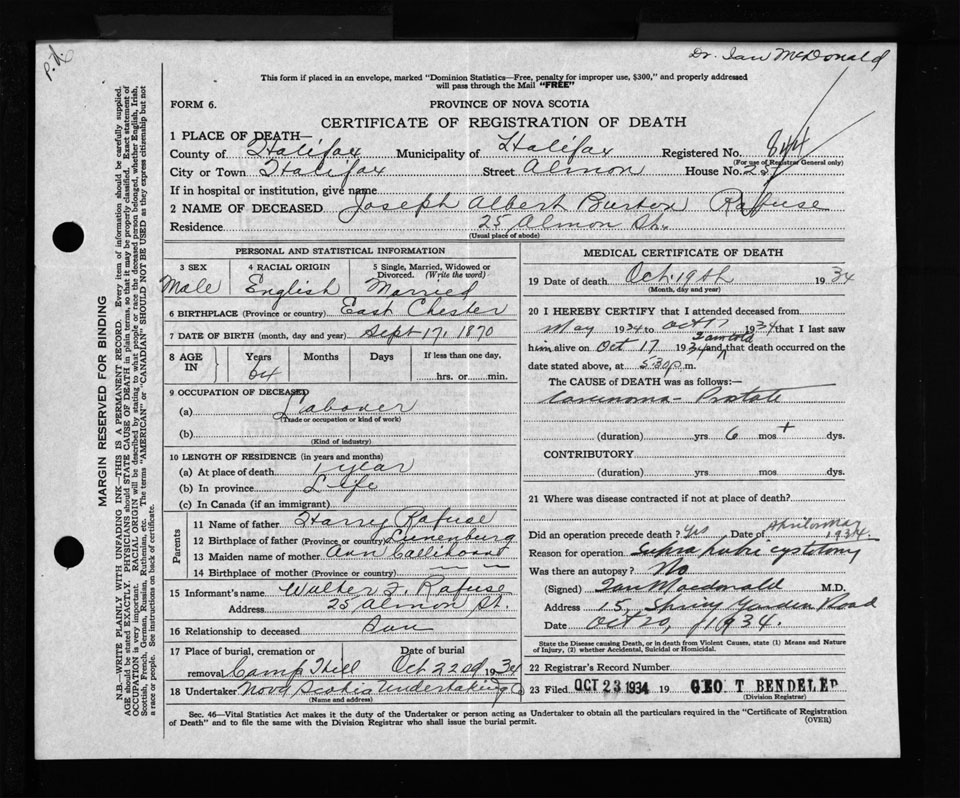 p.d.
Dr. Ian McDonald
This form if placed in an envelope, marked "Dominion Statistics—Free, penalty for improper use, $300," and properly addressed
will pass through the Mail "FREE"
FORM 6.
PROVINCE OF NOVA SCOTIA
CERTIFICATE OF REGISTRATION OF DEATH
1 PLACE OF DEATH—
County of Halifax Municipality of Halifax Registered No. 844
(For use of Registrar General only)
City or Town Halifax Street Almon House No. 25
If in hospital or institution, give name
2 NAME OF DECEASED Joseph Albert Burton Rafuse
Residence 25 Almon St.
(Usual place of abode)
PERSONAL AND STATISTICAL INFORMATION
3 SEX 4 RACIAL ORIGIN 5 Single, Married, Widowed or
Divorced. (Write the word)
Male English Married
6 BIRTHPLACE (Province or country) East Chester
7 DATE OF BIRTH (month, day and year) Sept 17, 1870
8 AGE IN Years Months Days If less than one day,
64 hrs. or min.
9 OCCUPATION OF DECEASED
(a) Laborer
(Trade or occupation or kind of work)
(b)
(Kind of industry)
10 LENGTH OF RESIDENCE (in years and months)
(a) At place of death 1 year
(b) In province Life
(c) In Canada (if an immigrant)
Parents
11 Name of father Harry Rafuse
12 Birthplace of father (Province or country) Lunenburg
13 Maiden name of mother Ann
14 Birthplace of mother (Province or country) — —
15 Informant's name Walter Rafuse
Address 25 Almon St.
16 Relationship to deceased Son
17 Place of burial, cremation or
removal Camp Hill Oct 22nd 1934
18 Undertaker Nova Scotia Undertaking Co
(Name and address)
MEDICAL CERTIFICATE OF DEATH
19 Date of death Oct. 19th 1934
(Month, day and year)
20 I HEREBY CERTIFY that I attended deceased from
May 1934 to Oct 17 1934 that I last saw
him alive on Oct 17 1934 and I am told that death occurred on the
date stated above, at 5:30 p.m.
The CAUSE of DEATH was as follows:—
Carcinoma - Prostate
(duration) yrs 6 mos + dys.
CONTRIBUTORY
(duration) yrs. mos. dys.
21 Where was disease contracted if not at place of death?
Did an operation precede death? Yes Date of April or May 1934.
Reason for operation Supra pubic cystotomy
Was there an autopsy? No
(Signed) Ian Macdonald M.D.
Address 15 Spring Garden Road
Date Oct 20 1934.
State the Disease causing Death, or in Death from Violent Causes, state (1) Means and Nature
of Injury, (2) whether Accidental, Suicidal or Homicidal.
22 Registrar's Record Number
23 Filed OCT 23 1934 19 GEO T BENDELEP
(Division Registrar)
Sec. 46—Vital Statistics Act makes it the duty of the Undertaker or person acting as Undertaker to obtain all the particulars required in the "Certificate of Registration
of Death" and to file the same with the Division Registrar who shall issue the burial permit.
(OVER)
MARGIN RESERVED FOR BINDING
N.B.—WRITE PLAINLY WITH UNFADING INK—THIS IS A PERMANENT RECORD. Every item of information should be carefully supplied.
AGE should be stated EXACTLY. PHYSICIANS should STATE CAUSE OF DEATH in plain terms, so that it may be properly classified. Exact statement of
OCCUPATION is very important. RACIAL ORIGIN will be described by stating to what people or race the deceased person belonged, whether English, Irish,
Scottish, French, German, Russian, Ruthenian, etc. The terms "AMERICAN" or "CANADIAN" SHOULD NOT BE USED as they express citizenship but not
a race or people. See instructions on back of certificate.